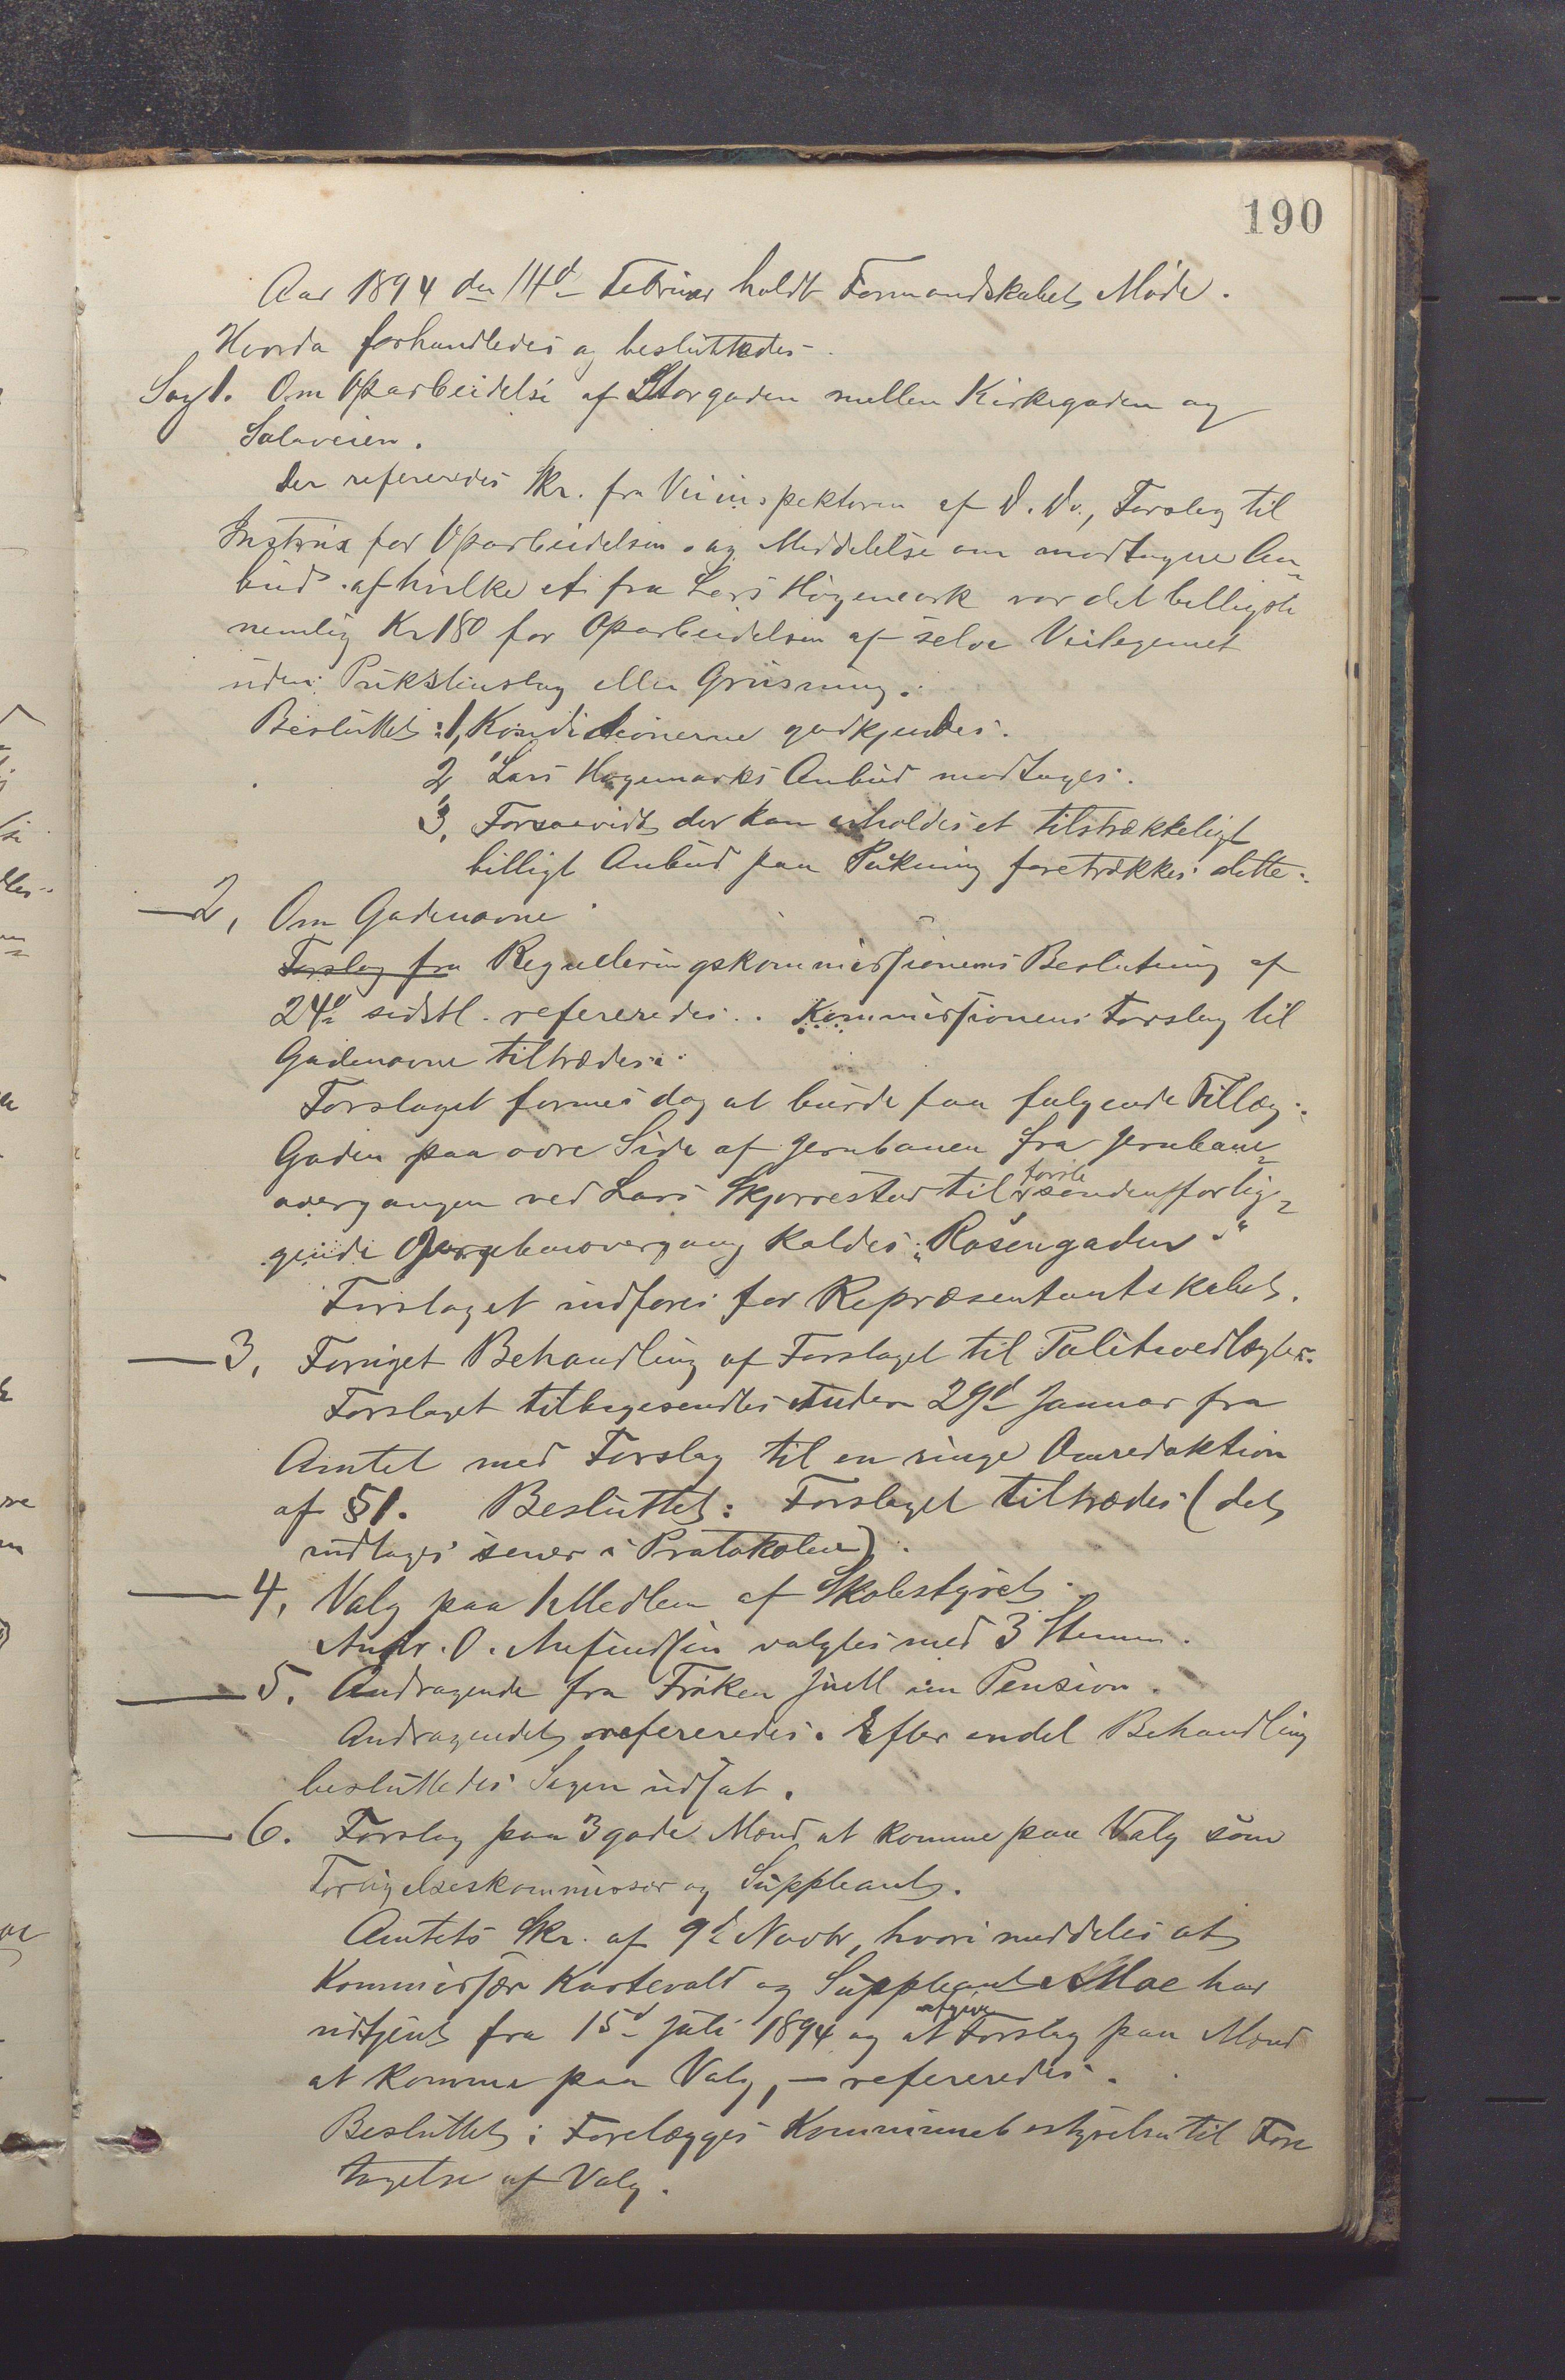 190
Aar 1894 den 14d Februar holdt Formandskabet Møde.
Hvorda forhandledes og besluttedes.
Sag 1. Om Oparbeidelse af Storgaden mellem Kirkegaden og
Solaveien.
Der refereredes Skr. fra Veiinspektøren af d. Ds., Forslag til
Instrux for Oparbeidelsen og Meddelelse om modtagne An-
bud af hvilke et fra Lars Høgemark var det billigste
nemlig Kr 180 for Oparbeidelsen af selve Veilegemet
uden Pukstenslag eller Grusning.
Besluttet: 1, Konditionerne godkjendes.
2, Lars Høgemarks Anbud modtages.
3, Forsaavidt der kan erholdes et tilstrækkeligt
billigt Anbud paa Pukning foretrækkes dette.
— 2, Om Gadenavne
Forslag fra Reguleringskommissionens Beslutning af
24d sidstl. refereredes. Kommissionens Forslag til
Gadenavne tiltrædes.
Forslaget formenes dog at burde faa følgende Tillæg:
Gaden paa øvre Side af Jernbanen fra Jernbane-
overgangen ved Lars Skjørrestad til første søndenforlig-
gende Jernbaneovergang kaldes „Rosengaden“.
Forslaget indføres for Repræsentantskabet.
— 3, Fornyet Behandling af Forslaget til Politivedtægter.
Forslaget tilbagesendtes under 29d Januar fra
Amtet med Forslag til en ringe Omredaktion
af § 1. Besluttet: Forslaget tiltrædes (det
indtages senere i Protokolen).
— 4, Valg paa 1 Medlem af Skolestyret.
Andr. O. Anfindsen valgtes med 3 Stemmer.
— 5. Andragende fra Frøken Juell om Pension.
Andragendet refereredes. Efter endel Behandling
besluttedes Sagen udsat.
— 6. Forslag paa 3 gode Mænd at komme paa Valg som
Forligelseskommissær og Suppleant.
Amtets Skr. af 9d Novbr, hvori meddeles at
Kommissær Kartevold og Suppleant Moe har
udtjent fra 15d Juli 1894 og at afgive Forslag paa Mænd
at komme paa Valg, — refereredes.
Besluttet: Forelægges Kommunebestyrelsen til Fore
tagelse af Valg.